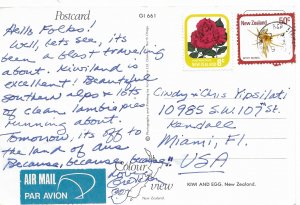 Postcard
GI 661
Hello Folks!
Well, lets see, its
been a blast traveling
about. Kiwiland is
excellent! Beautiful
Southern alps & lots
of clean lambipies
running about.
Tomorrow, its off to
the land of Aus
Because, because, because
AIR MAIL
PAR AVION
Colour
view
New Zealand
50c
NEW ZEALAND
Cindy & Chris Ypsilanti
10985 S.W. 109th St.
Kendall
Miami, Fl.
USA
KIWI AND EGG. New Zealand.